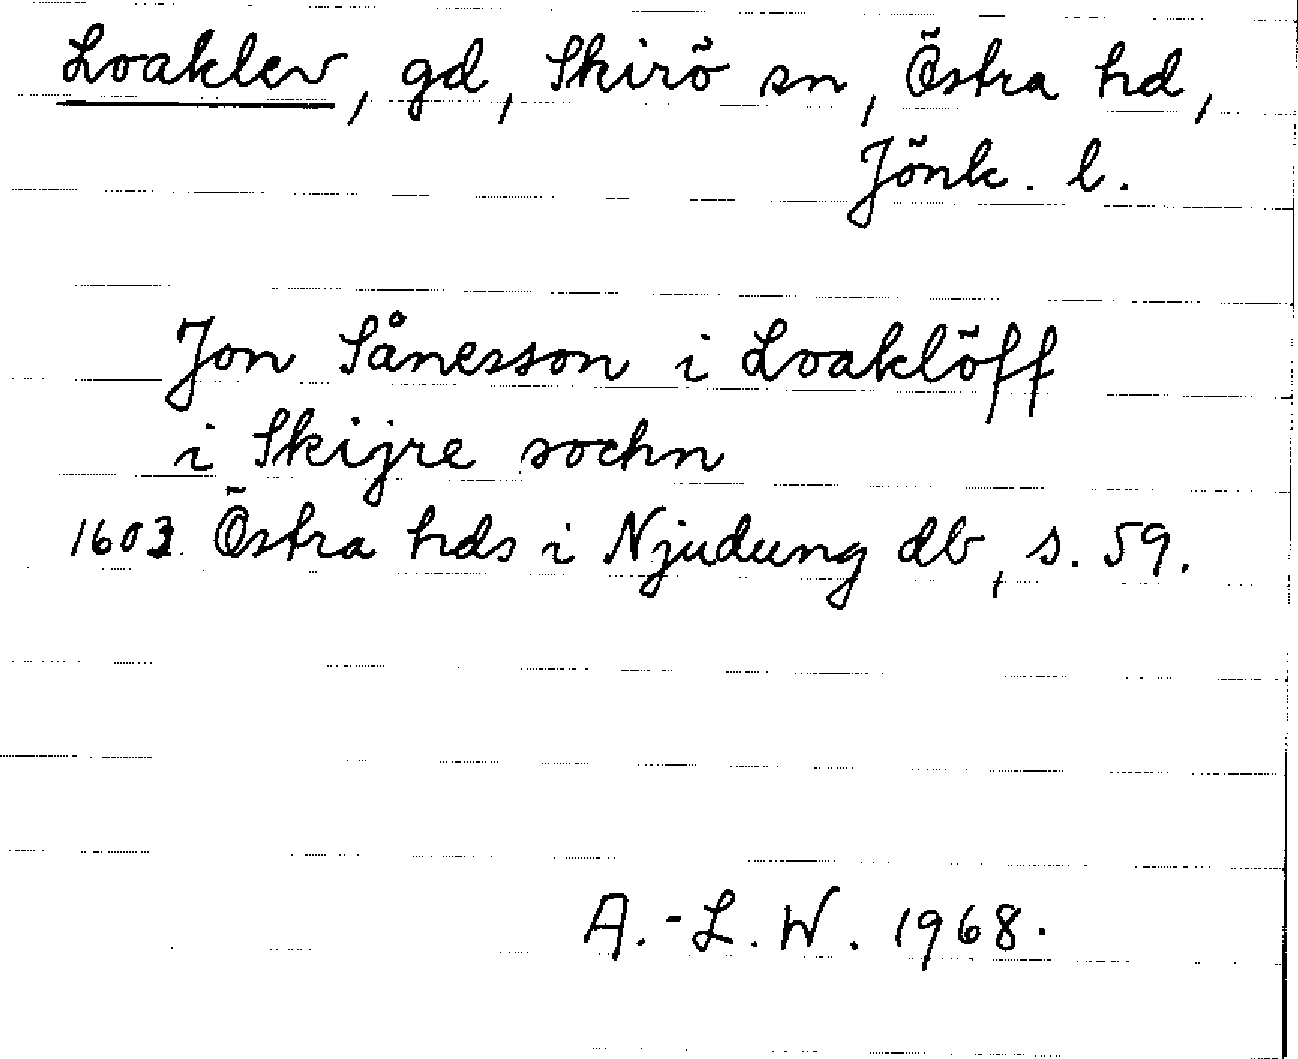 Loaklev, gd, Skirö sn, Östra hd,
Jönk. l.
Jon Sånesson i Loaklöff
i Skijre sochn
1603 Östra hds i Njudung db, s. 59.
A.-L. W. 1968.